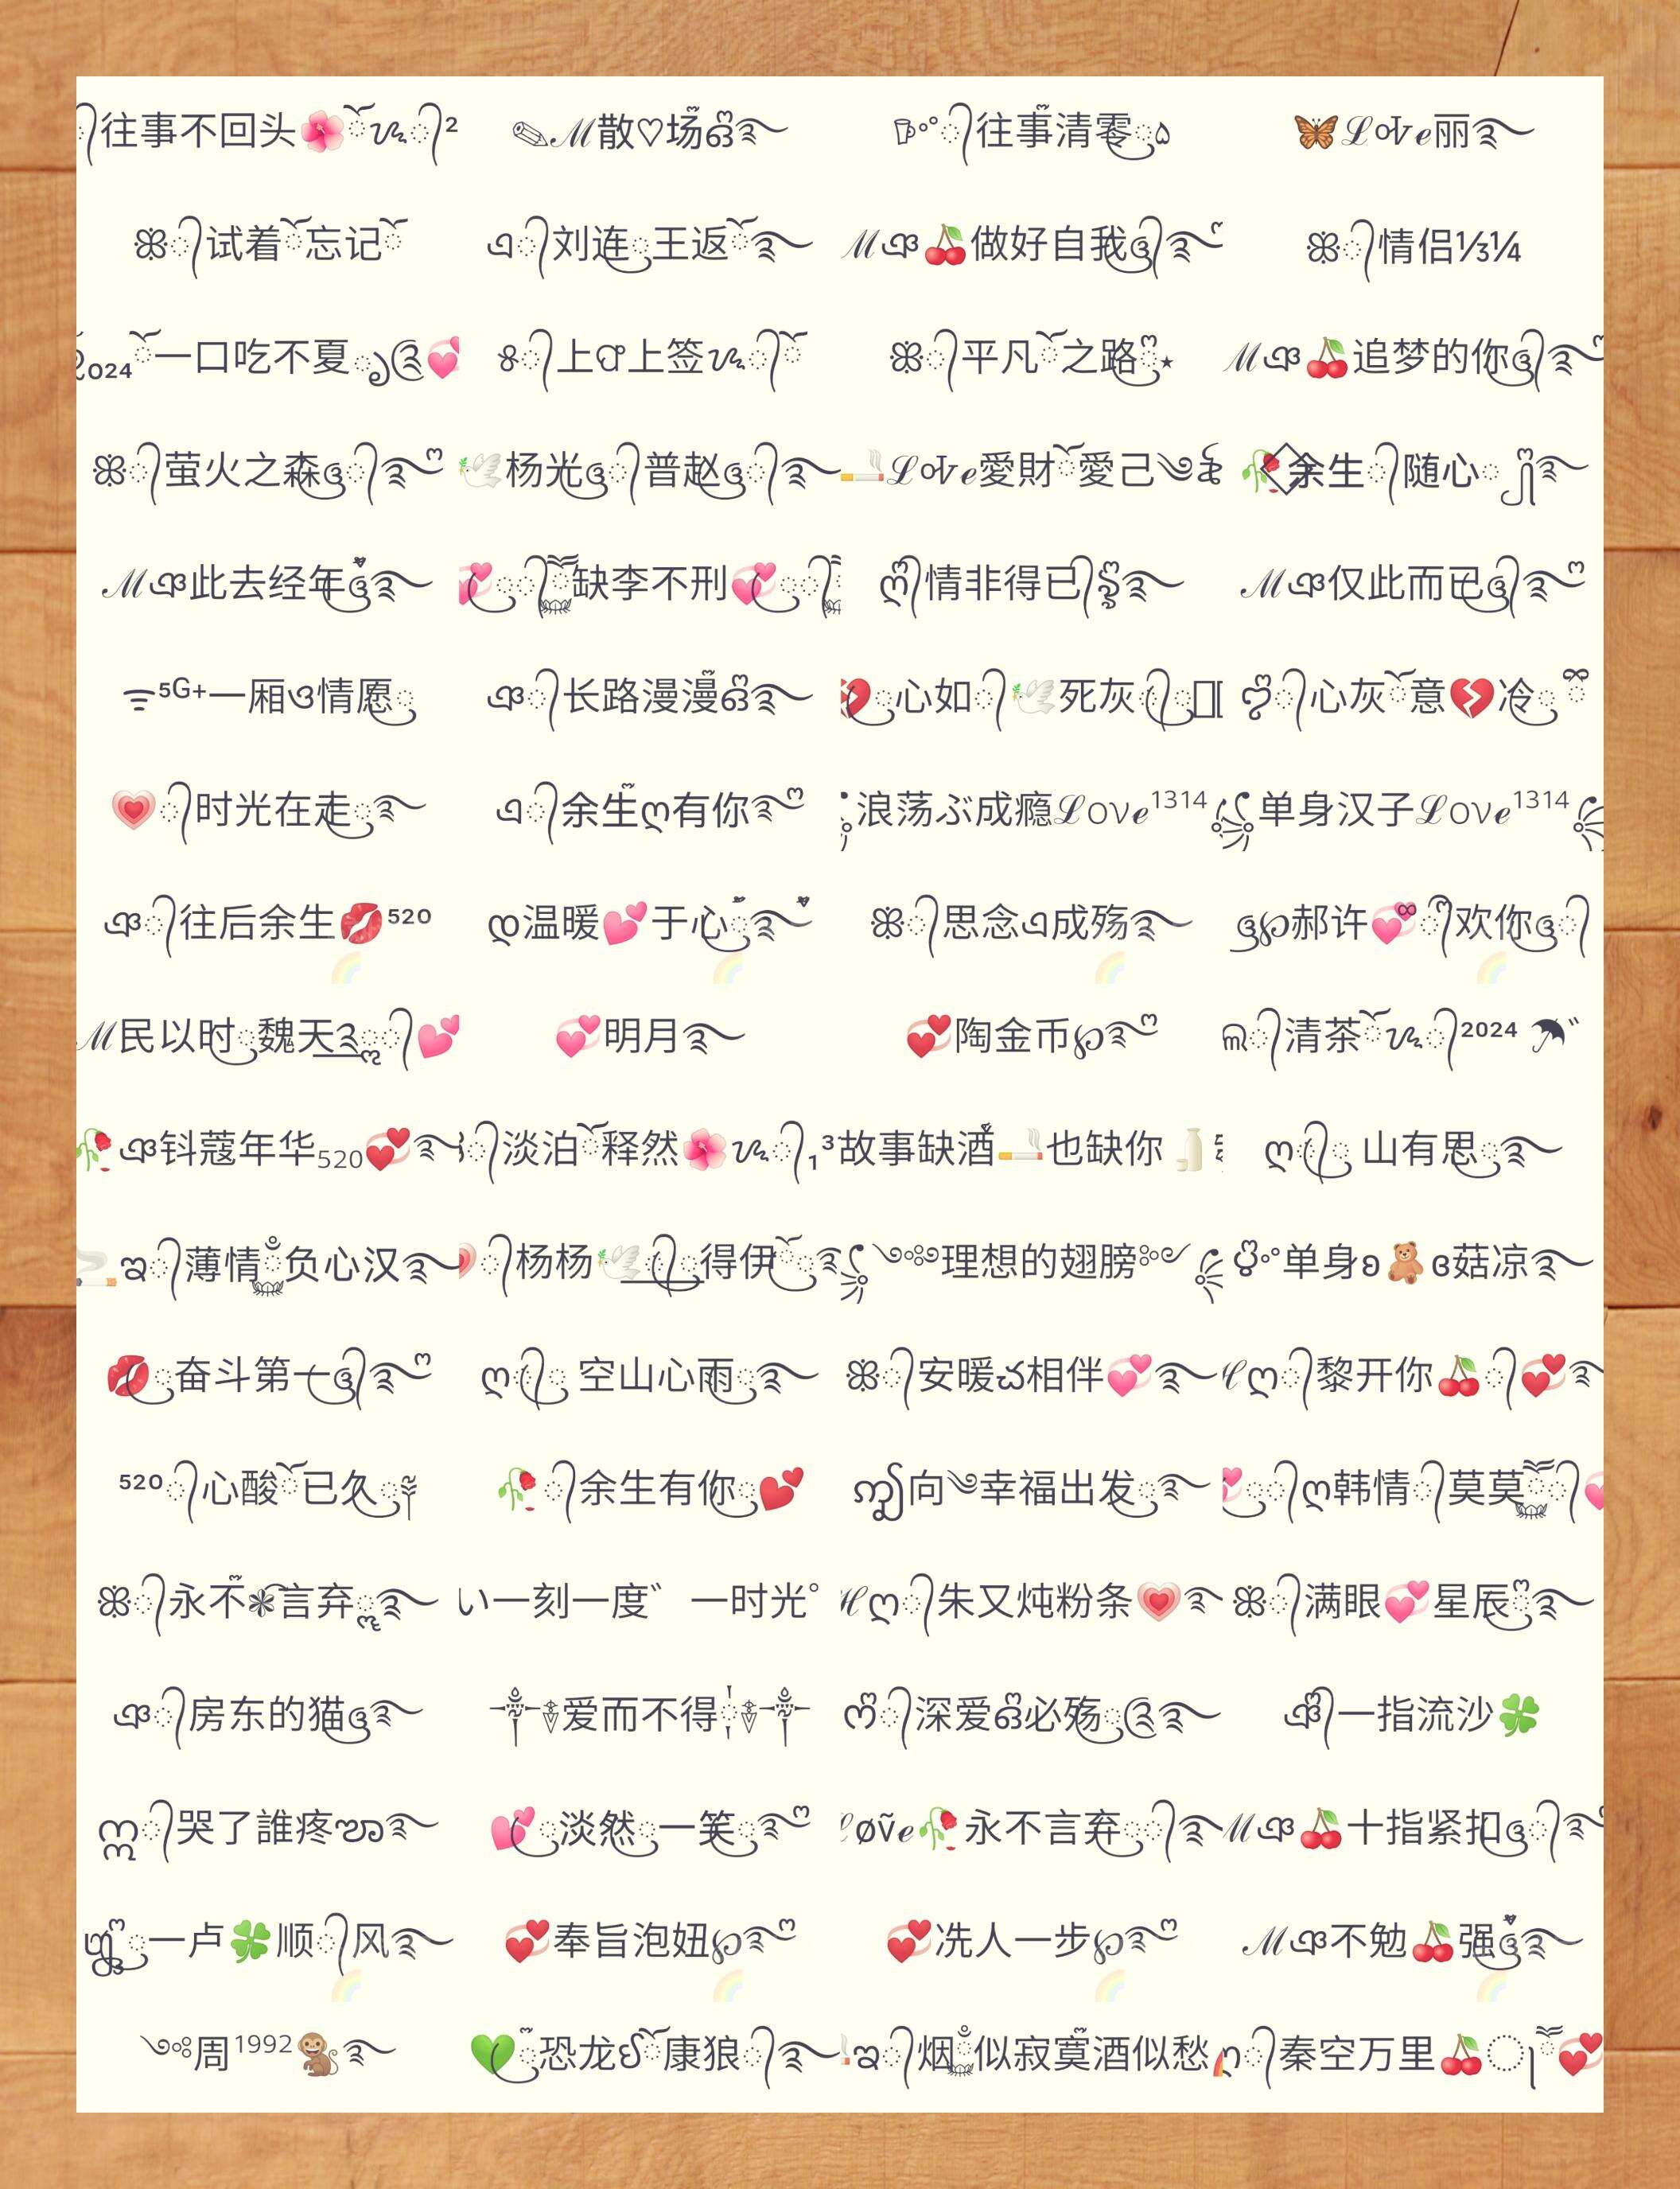 往事不回头🌺² ✎ℳ散♡场 往事清零 🦋ℒ𝓸𝓿ℯ丽
ꕥ᭄试着忘记 刘连王返 ℳ🍒做好自我 ꕥ᭄情侣⅓¼
₂₀₂₄一口吃不夏💞 上上签 ꕥ᭄平凡之路 ℳ🍒追梦的你
ꕥ᭄萤火之森 🕊杨光普赵 🚬ℒ𝓸𝓿ℯ愛財愛己 🥀余生随心
ℳ此去经年 💞缺李不刑💞 ღ᭄情非得已 ℳ仅此而已
⁵ᴳ⁺一厢情愿 长路漫漫 💔心如🕊死灰 心灰意💔冷
💗时光在走 余生ღ有你 浪荡ぶ成瘾ℒoνℯ¹³¹⁴ 单身汉子ℒoνℯ¹³¹⁴
往后余生💋⁵²⁰ 温暖💕于心 ꕥ᭄思念成殇 郝许💞欢你
ℳ民以时魏天💕 💞明月 💞陶金币℘ 清茶²⁰²⁴ ☂
🥀钭蔻年华₅₂₀💞 淡泊释然🌺₁³ 故事缺酒🚬也缺你🍶 ღ 山有思
🚬薄情负心汉 杨杨🕊得伊 理想的翅膀 单身ʚ🧸ɞ菇凉
💋奋斗第一 ღ 空山心雨 ꕥ᭄安暖相伴💞 ღ᭄黎开你🍒💞
⁵²⁰心酸已久 🥀余生有你💕 向幸福出发 💞ღ韩情莫莫💞
ꕥ᭄永不❃言弃 い一刻一度゛ 一时光° ℋღ᭄朱又炖粉条💗 ꕥ᭄满眼💞星辰
房东的猫 爱而不得 深爱必殇 一指流沙🍀
哭了誰疼 💕淡然一笑 ℒøṽℯ🥀永不言弃 ℳ🍒十指紧扣
一卢🍀顺风 💞奉旨泡妞℘ 💞冼人一步℘ ℳ不勉🍒强
周¹⁹⁹²🐒 💚恐龙康狼 🚬烟似寂寞酒似愁 秦空万里🍒💞